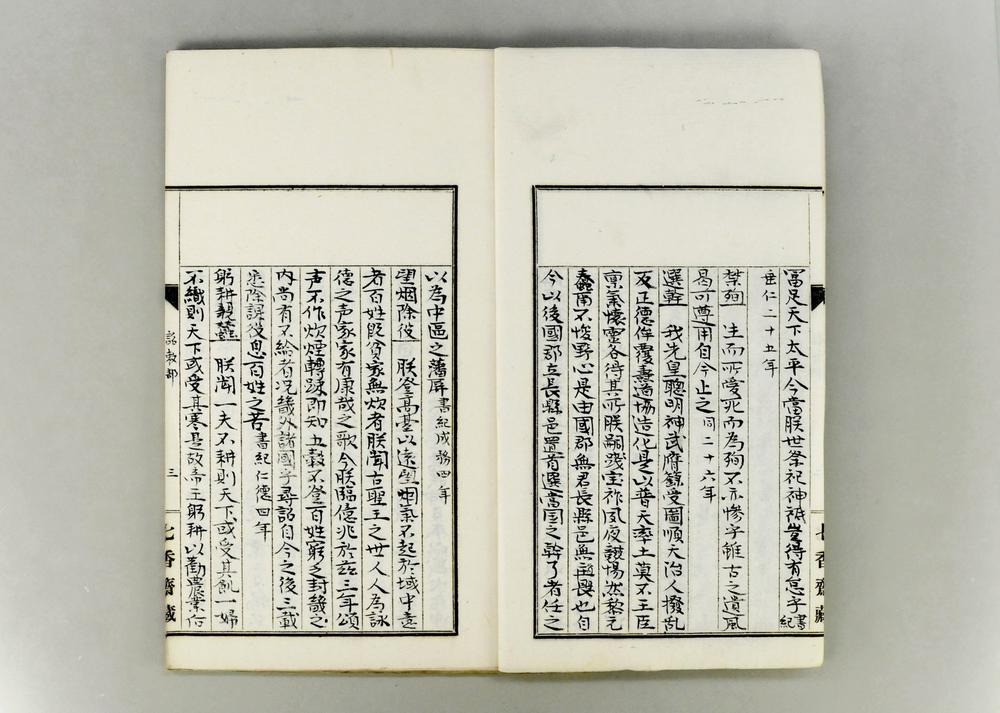 冨足天下太平今當朕世祭祀神祇豈得有怠乎書紀
垂仁二十五年
禁殉 生而所愛死而為殉不亦惨乎雖古之遺風
曷可尊用自今止之同二十六年
選幹 我先皇聰明神武膺籙受圖順天治人撥乱
反正德侔覆燾道協造化是以普天率土莫不王臣
稟氣懷靈各得其所朕嗣踐宝祚夙夜兢惕然黎元
蠢爾不悛野心是由國郡無君長縣邑無首渠也自
今以後國郡立長縣邑置首選當国之幹了者任之
七香齋藏
以為中區之藩屏書紀成務四年
望烟除役 朕登高臺以遠望烟氣不起於域中意
者百姓既貧家無炊者朕聞古聖王之世人人為詠
德之声家家有康哉之歌今朕臨億兆於茲三年頌
声不作炊煙轉踈即知五穀不登百姓窮乏封畿之
内尚有不給者况畿外諸國乎尋詔自今之後三載
悉除課役息百姓之苦書紀仁德四年
躬耕親蠶 朕聞一夫不耕則天下或受其飢一婦
不織則天下或受其寒是故帝王躬耕以勸農業后
詔敕部
三
七香齋藏